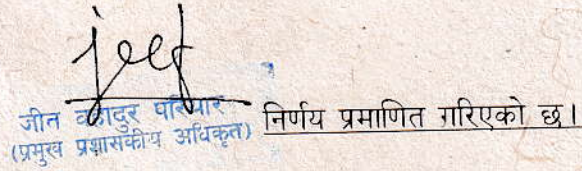 जीत बहादुर परियार
(प्रमुख प्रशासकीय अधिकृत) निर्णय प्रमाणित गरिएको छ।